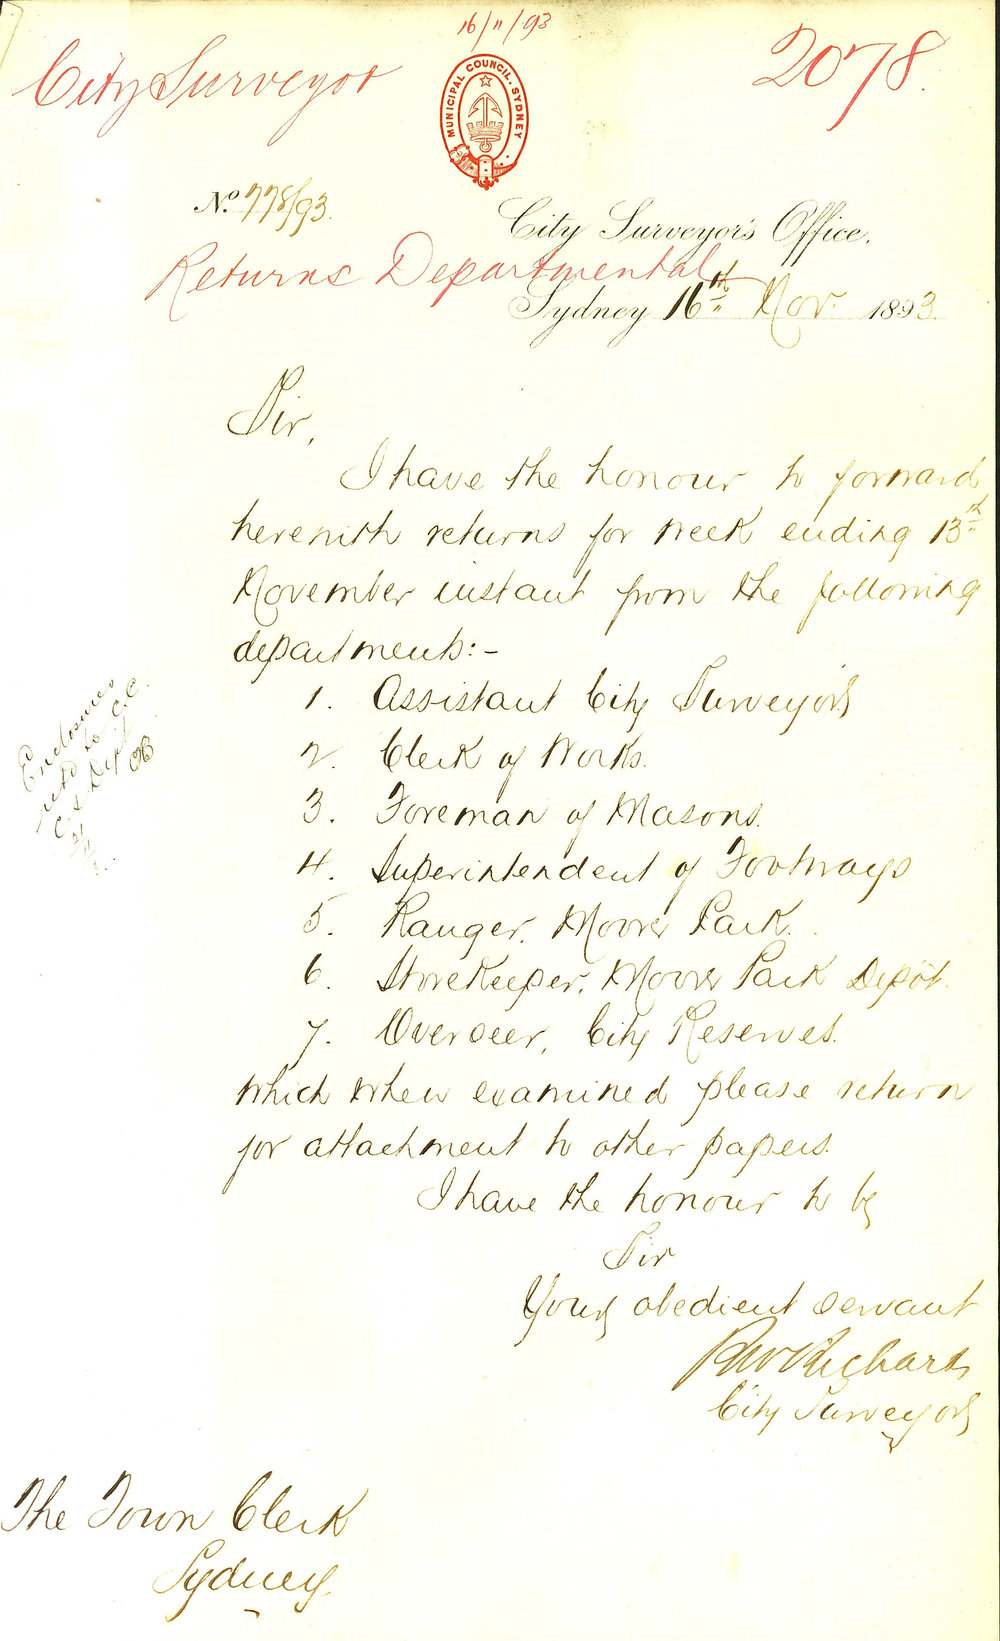 16/11/93
City Surveyor
2078.
MUNICIPAL COUNCIL. SYDNEY
No. 778/93.
City Surveyor's Office,
Returns Departmental
Sydney 16th Nov. 1893.
Sir,
I have the honour to forward
herewith returns for week ending 13th
November instant from the following
departments:-
1. Assistant City Surveyor
2. Clerk of Works.
3. Foreman of Masons.
4. Superintendent of Footways
5. Ranger, Moore Park.
6. Storekeeper, Moore Park Depôt.
7. Overseer, City Reserves.
which when examined please return
for attachment to other papers.
I have the honour to be
Sir
Your obedient servant
RW Richards
City Surveyor
Enclosures
retd to C.C.
C.S Dept
The Town Clerk
Sydney.